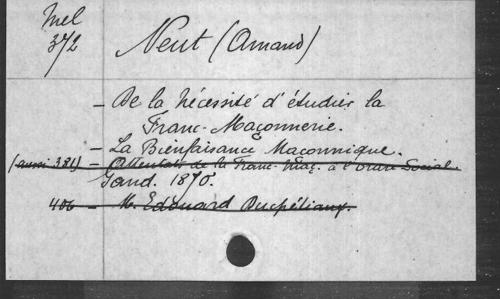 Mel
372
Neut (Amand)
- De la Nécessité d'étudier la
Franc-Maçonnerie.
- La Bienfaisance Maçonnique.
(aussi 381) - Attentats de la Franc-Maç. à l'Ordre Social.
Gand. 1870.
406 - M. Edouard Ducpétiaux.